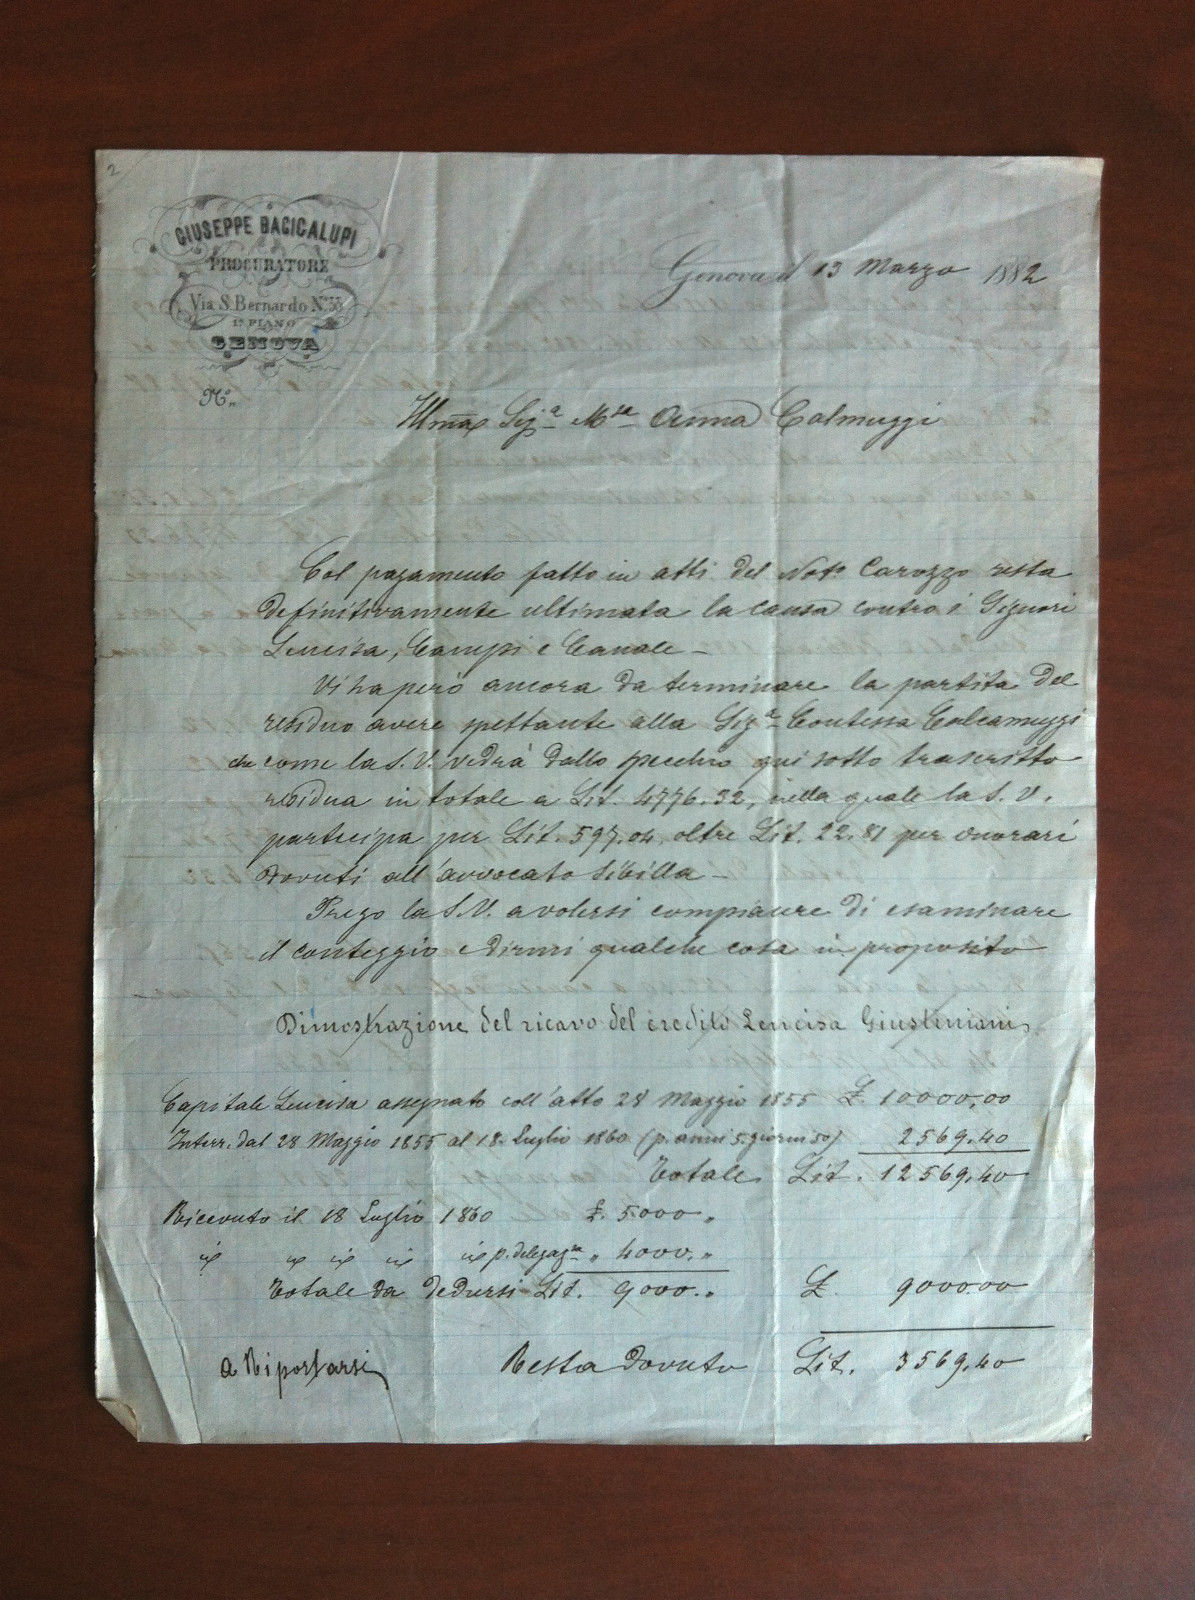 2
GIUSEPPE BACIGALUPI
PROCURATORE
Via S. Bernardo N.
1° PIANO
GENOVA
N.°
Genova il 13 Marzo 1882
Illma Sig.a M.sa Anna
Col pagamento fatto in atti del Not.o Carozzo resta
definitivamente ultimata la causa contro i Signori
Lencisa, Campi e Canale –
Vi ha però ancora da terminare la partita del
residuo avere spettante alla Sig.a Contessa
che come la S. V. vedrà dallo specchio qui sotto trascritto
residua in totale a Lit. 4776.32, nella quale la S. V.
partecipa per Lit. 597.04, oltre Lit. 22.81 per onorari
dovuti all'avvocato Sibilla –
Prego la S. V. a volersi compiacere di esaminare
il conteggio e dirmi qualche cosa in proposito
Dimostrazione del ricavo del credito Lencisa Giustiniani
Capitale Lencisa assegnato coll'atto 28 Maggio 1855 £. 10000,00
Inter. dal 28 Maggio 1855 al 18 Luglio 1860 (p. anni 5 giorni 50) 2569.40
Totale Lit. 12569.40
Ricevuto il 18 Luglio 1860 £. 5000 "
id id id id id p. delegaz.ne " 4000. "
Totale da dedursi Lit. 9000. " £. 9000.00
a Riportarsi Resta dovuto Lit. 3569.40